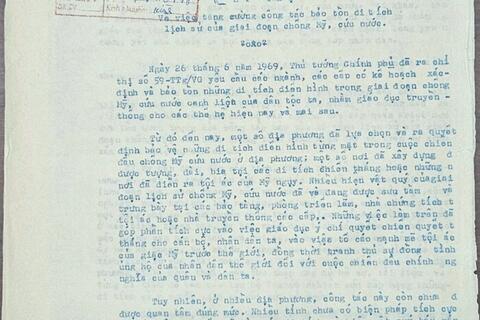 Về việc tăng cường công tác bảo tồn di tích
lịch sử của giai đoạn chống Mỹ, cứu nước.
Ngày 26 tháng 6 năm 1969, Thủ tướng Chính phủ đã ra chỉ
thị số 59-TTg/VG yêu cầu các ngành, các cấp có kế hoạch xác-
định và bảo tồn những di tích điển hình trong giai đoạn chống
Mỹ, cứu nước oanh liệt của dân tộc ta, nhằm giáo dục truyền -
thống cho các thế hệ hiện nay và mai sau.
Từ đó đến nay, một số địa phương đã lựa chọn và ra quyết
định bảo vệ những di tích điển hình từng mặt trong cuộc chiến
đấu chống Mỹ cứu nước ở địa phương; một số nơi đã xây dựng
được tượng, đài, bia tại các di tích chiến thắng hoặc những n
nơi đã diễn ra tội ác của Mỹ ngụy. Nhiều hiện vật quý của giai
đoạn lịch sử chống Mỹ, cứu nước đã và đang được sưu tầm và
trưng bày tại các bảo tàng, phòng triển lãm, nhà chứng tích t
tội ác hoặc nhà truyền thống các cấp. Những việc làm trên đã
góp phần tích cực vào việc giáo dục ý chí quyết chiến quyết t
thắng cho cán bộ, nhân dân ta, vào việc tố cáo mạnh mẽ tội ác
của giặc Mỹ trước thế giới, đồng thời tranh thủ sự đồng tình
ủng hộ của nhân dân thế giới đối với cuộc chiến đấu chính
nghĩa của quân và dân ta.
Tuy nhiên, ở nhiều địa phương, công tác này còn chưa đ
được quan tâm đúng mức. Nhiều tỉnh chưa có biện pháp tích cực